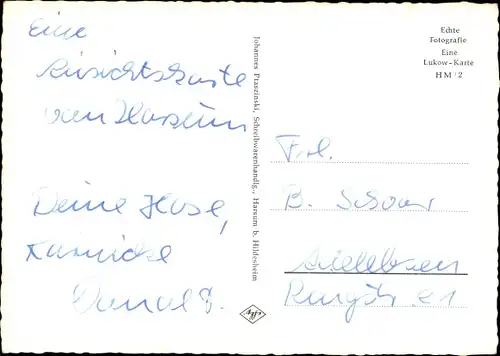 Eine
Ansichtskarte
von Harsum
Deine Hase,
Karnickel
Johannes Ptaszinski, Schreibwarenhandlg., Harsum b. Hildesheim
Echte
Fotografie
Eine
Lukow-Karte
HM/2
Frl.
B.
Agfa